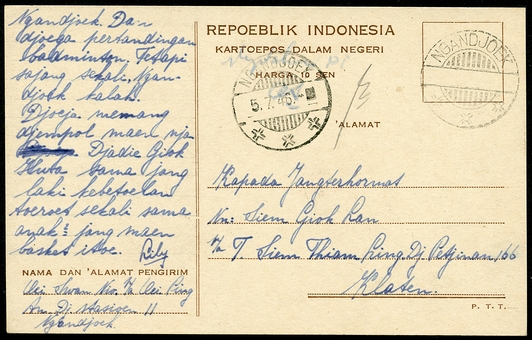 Ngandjoek Dan
djoega pertandingan
badminton, Tetapi
sajang sekali, Ngan-
djoek kalah.
Djoeja memang
djempol maen nja
Djadie Giok
Hwa sama jang
laki kebetoelan
toeroet sekali sama
anak² jang maen
basket itoe.
Lily
NAMA DAN 'ALAMAT PENGIRIM
Oei Swan Nio. Oei Ping
An. Dj. stasioen 11
Ngandjoek.
REPOEBLIK INDONESIA
KARTOEPOS DALAM NEGERI
HARGA 10 SEN
NGANDJOEK
5.7.46.
NGANDJOEK
'ALAMAT
Kapada Jangterhormat
Nn: Siem Giok Lan
T. Siem Thiam Ping. Dj. Petjinan 166
Klaten.
P. T. T.